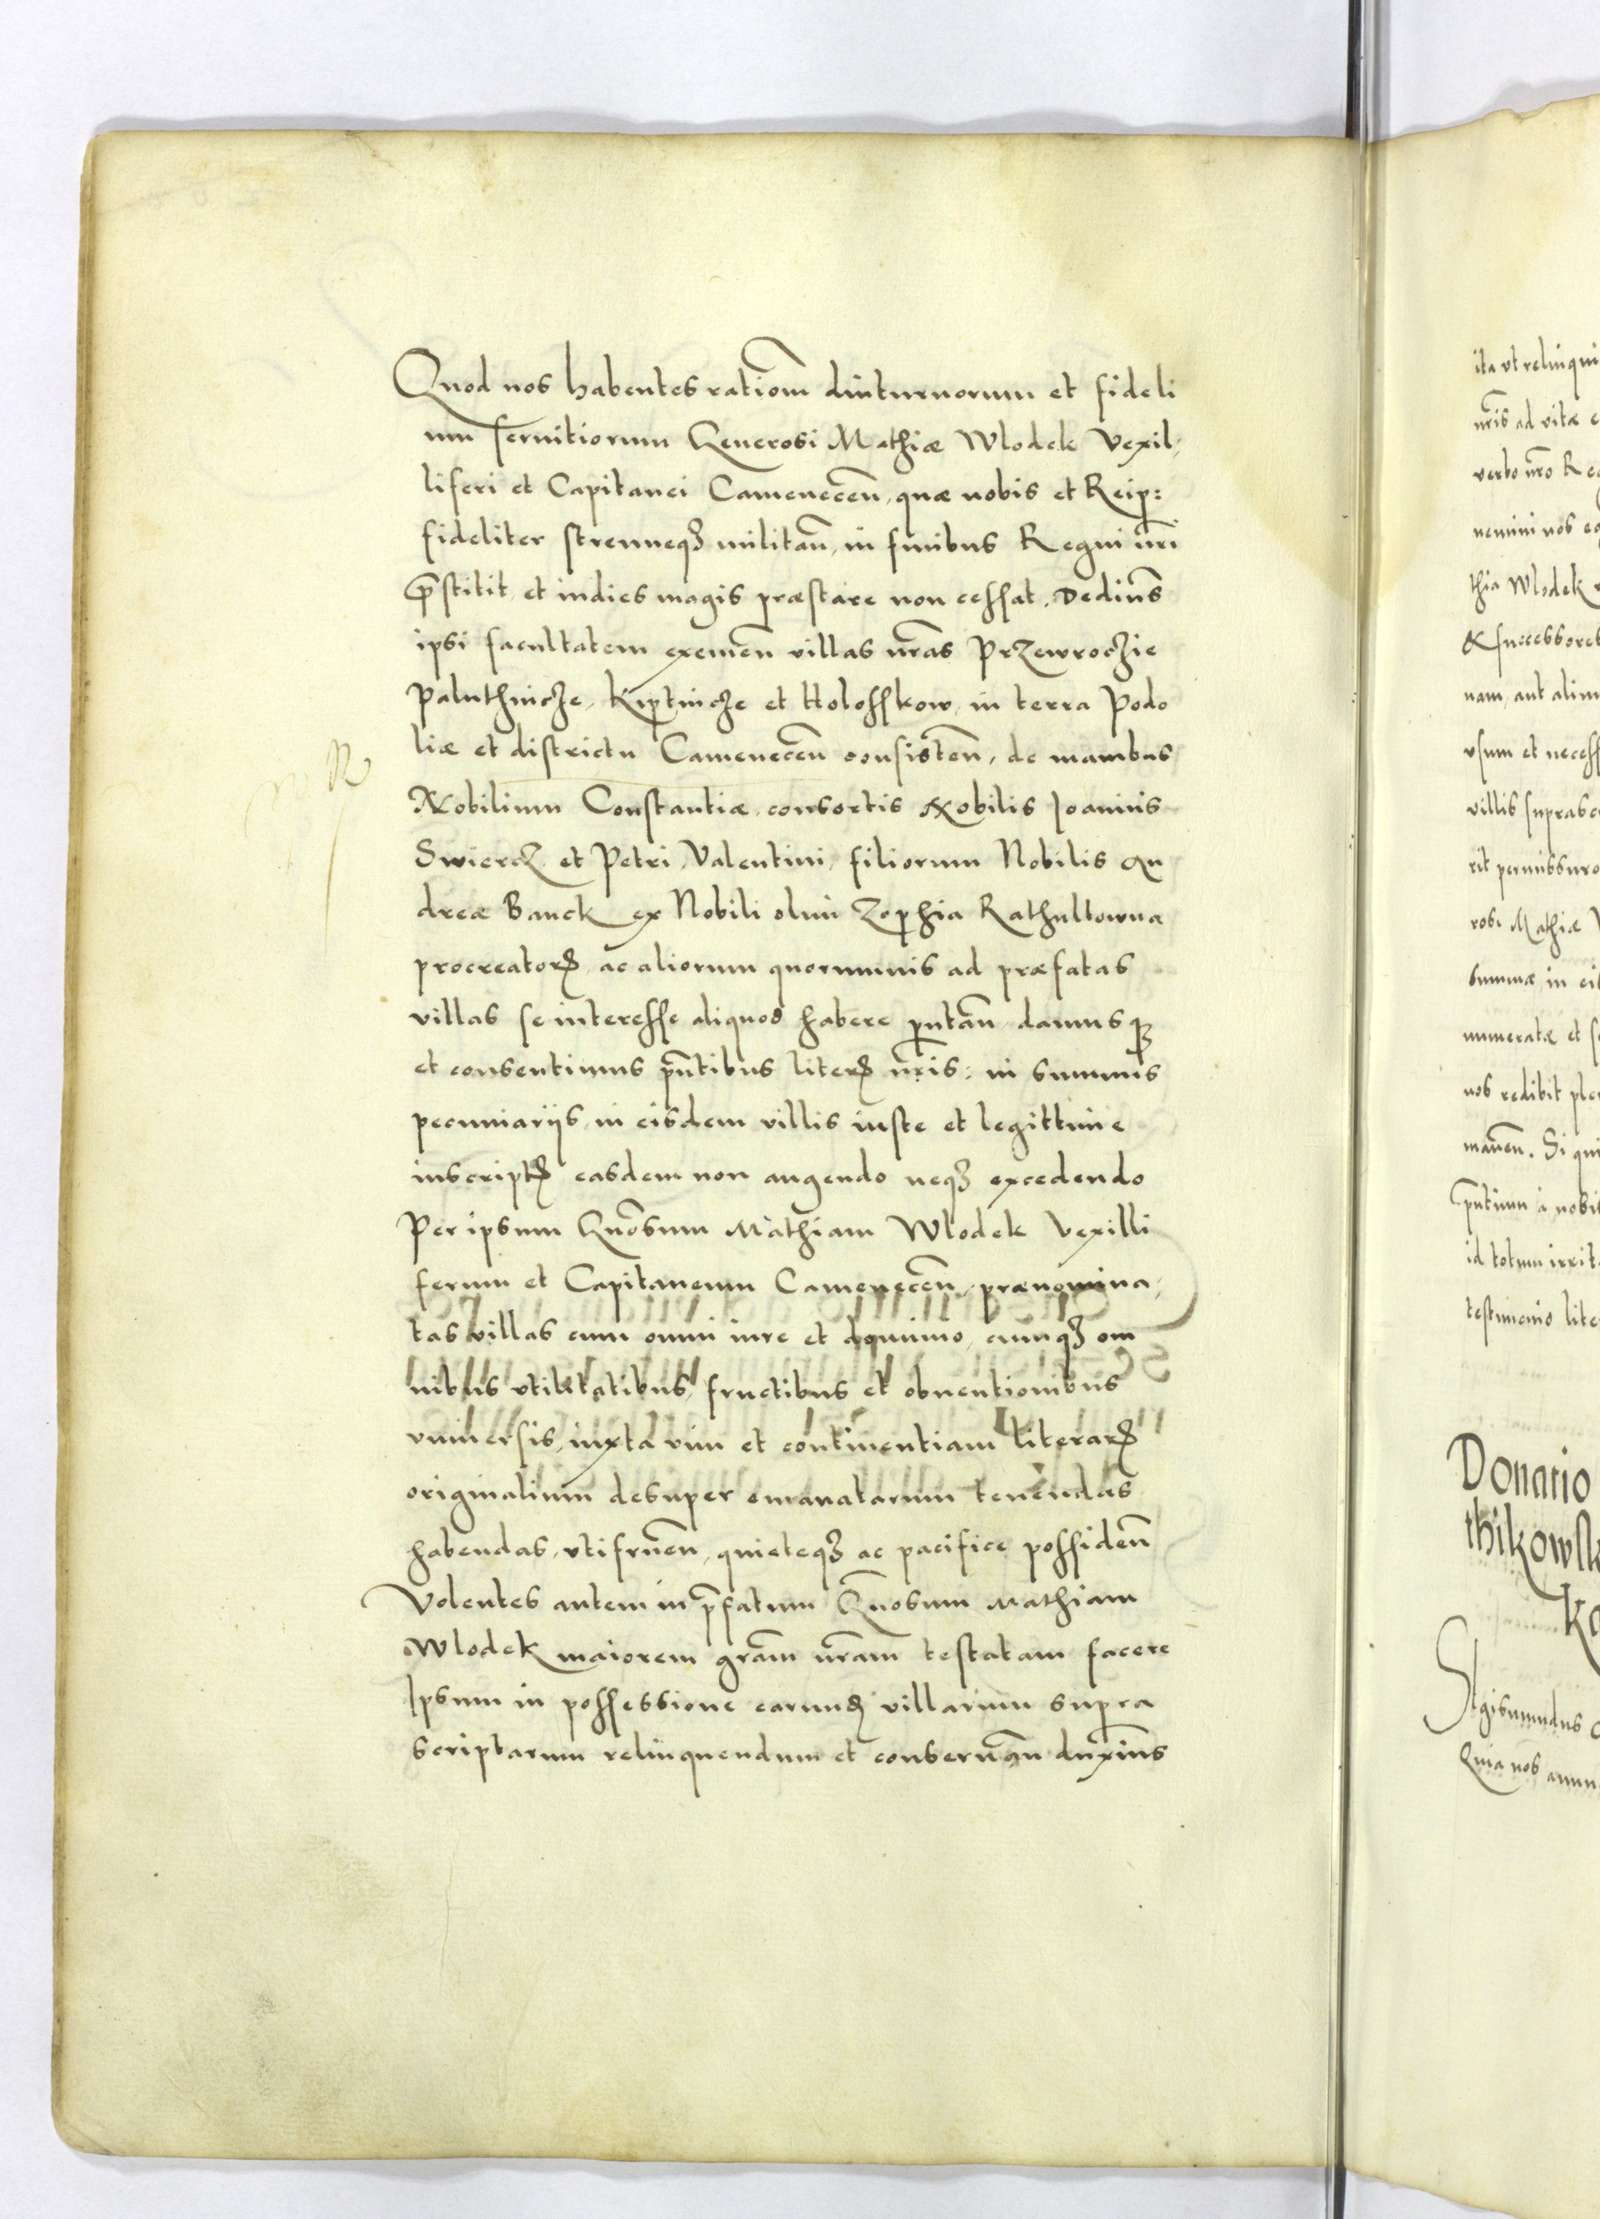 Quod nos habentes ratiom̄ diuturnorum et fideli
um seruitiorum Generosi Mathiæ Wlodek Vexil-
liferi et Capitanei Camenecen̄, quæ nobis et Reip:
fideliter strenueqȝ militan̄, in finibus Regni nr̄i
p̄stitit, et indies magis præstare non cessat. Dedimꝰ
ipsi facultatem exemen̄ villas nr̄as Przewroczie
Paluthincze, Kiptincze et Holosskow, in terra Podo
liæ et districtu Camenecen̄ consisten̄, de manibus
Nobilium Constantiæ, consortis Nobilis Joannis
Swiercz et Petri, Valentini, filiorum Nobilis An
dreæ Banck ex Nobili olim Zophia Rathultowna
procreatorꝝ, ac aliorum quorumuis ad præfatas
villas se interesse aliquod habere putan̄ damus qȝ
et consentimus pn̄tibus literꝭ nr̄is: in summis
pecuniarijs, in eisdem villis iuste et legittime
inscriptꝭ easdem non augendo neqȝ excedendo
Per ipsum Gn̄osum Mathiam Wlodek Vexilli
ferum et Capitaneum Camenecen̄, prænomina-
tas villas cum omni iure et dominio, cumqȝ om
nibus vtilitatibus, fructibus et obuentionibus
vniuersis, iuxta vim et continentiam literarꝝ
originalium desuper emanatarum tenendas
habendas, vtifruen̄, quieteqȝ ac pacifice possiden̄
Volentes autem in p̄fatum Gn̄osum Mathiam
Wlodek maiorem gram̄ nr̄am testatam facere
Ipsum in possessione earundꝫ villarum supra
scriptarum relinquendum et conseruan̄ duximꝰ
ita vt relinqui
nr̄is ad vitæ
verbo nr̄o Re
nemini nos
thia Wlodek
& successores
nam, aut alim
vsum et necess
villis suprasc
rit permissuro
rosi Mathiæ
summæ in ei
numeratæ et
nos redibit ple
manen̄. Si qui
pn̄tium a nobis
id totum irrit
testimonio lite
Donatio
thikowsk
Ko
Sigismundus
Quia nos